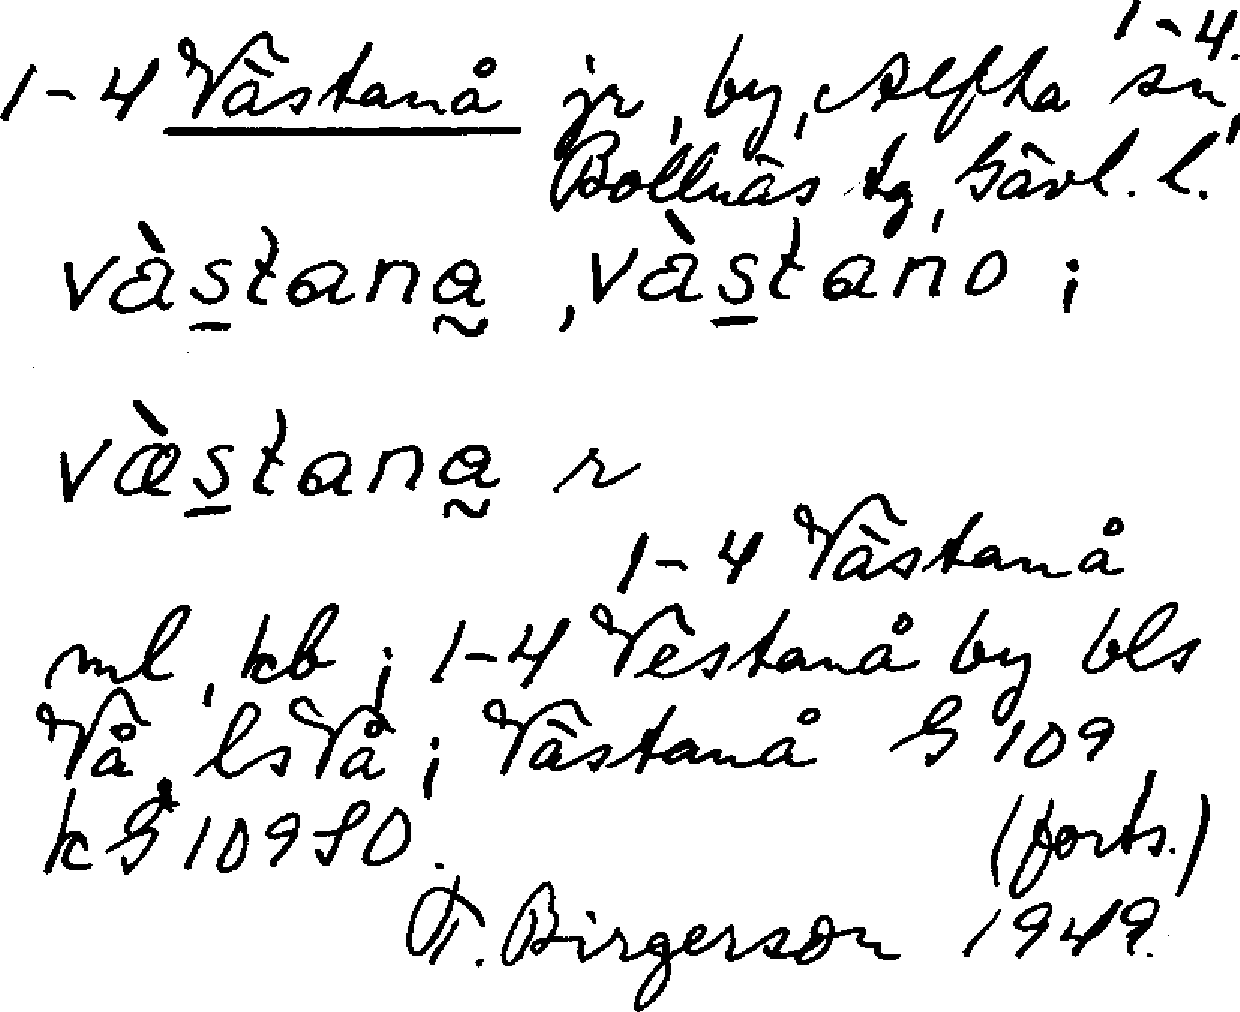 1-4.
1-4 Västanå jr, by, Alfta sn,
Bollnäs tg, Gävl. l.
våstana, våstano;
væstana r
1-4 Västanå
ml, kb; 1-4 Vestanå by bls
Vå, ls Vå; Västanå G 109,
kG 109 SO. (forts.)
T. Birgerson 1949.